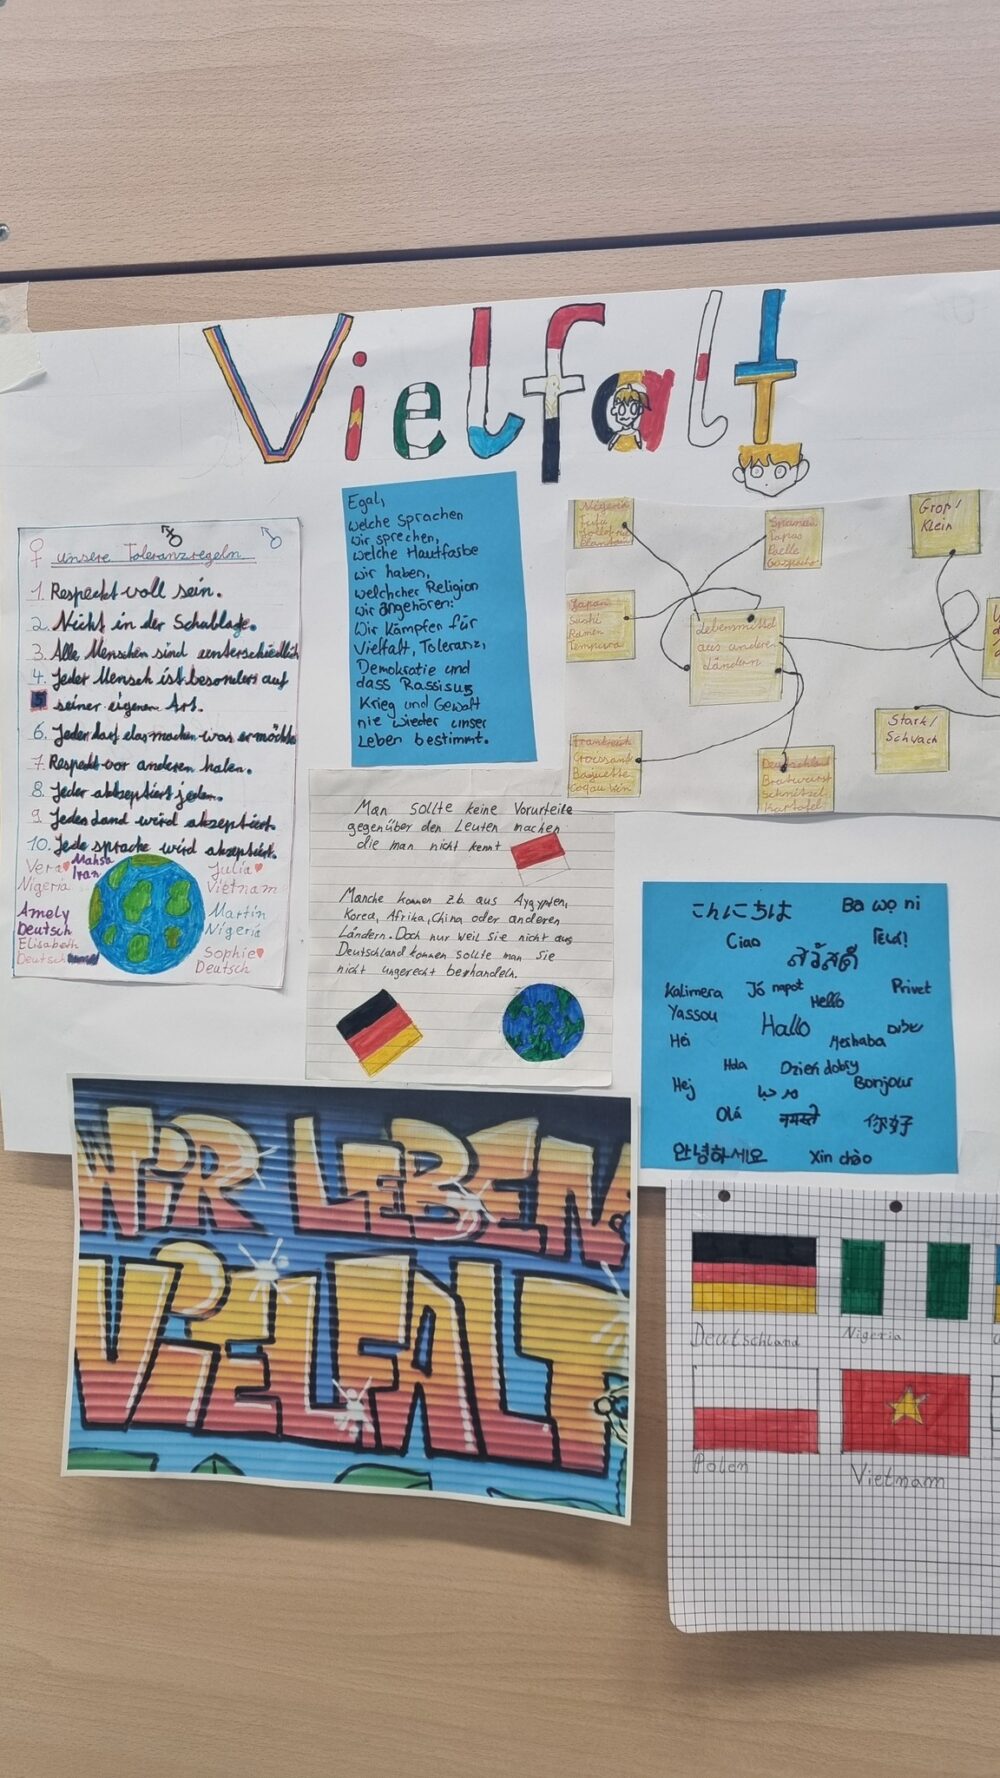 Vielfalt
unsere Toleranzregeln
1. Respeckt voll sein.
2. Nicht in der Schublage.
3. Alle Menschen sind
4. Jeder Mensch ist besonders auf
5 seiner eigenen Art.
6. Jeder darf das machen was er möchte
7. Respekt vor anderen haben.
8. Jeder akzeptiert jeden.
9. Jedes Land wird akzeptiert.
10. Jede sprache wird akzeptiert.
Vera
Nigeria
Mahsa
Iran
Amely
Deutsch
Elisabeth
Deutsch
Julia
Vietnam
Martin
Nigeria
Sophie
Deutsch
Egal,
welche Sprachen
wir sprechen,
welche Hautfasbe
wir haben,
welchcher Religion
wir angehören:
Wir Kämpfen für
Vielfalt, Toleranz,
Demokratie und
dass Rassisus
Krieg und Gewalt
nie wieder unser
Leben bestimmt.
Nigeria
Fufu
Spanien
Tapas
Paelle
Gaspacho
Groß/
Klein
Japan
Sushi
Ramen
Tempura
Lebensmittel
aus anderen
Ländern
Stark/
Schwach
Frankreich
Croissant
Baguette
Coqau Vin
Deutschland
Bratwurst
Schnitzel
Kartofel
Man sollte keine Vorurteile
gegenüber den Leuten machen
die man nicht kennt
Manche konnen z.b. aus Aygypten,
Korea, Afrika, China oder anderen
Ländern. Doch nur weil sie nicht aus
Deutschland konnen sollte man sie
nicht ungerecht behandeln.
こんにちは
Ba wo ni
Ciao
สวัสดี
Kalimera
Jó napot
Hello
Privet
Yassou
Hallo
Hei
Meshaba
שלום
Hola
Dzień dobry
Hej
Bonjour
Olá
नमस्ते
你好
안녕하세요
Xin chào
WIR LEBEN
VIELFALT
Deutschland
Nigeria
Polen
Vietnam